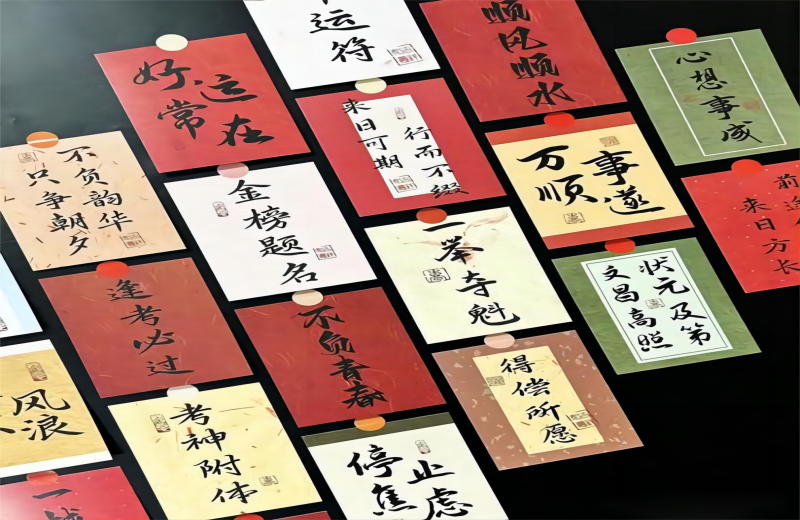 运符
顺风顺水
心想事成
好运
常在
行而不缀
来日可期
万事
顺遂
前途
来日方长
不负韵华
只争朝夕
金榜题名
一举夺魁
状元及第
文昌高照
逢考必过
不负青春
得偿所愿
风浪
考神附体
停止
焦虑
一